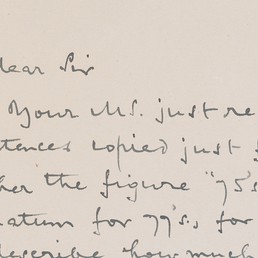 Dear Sir
Your MS. just re
tences copied just f
her the figure "75's
atum for 77's., for
describe how much